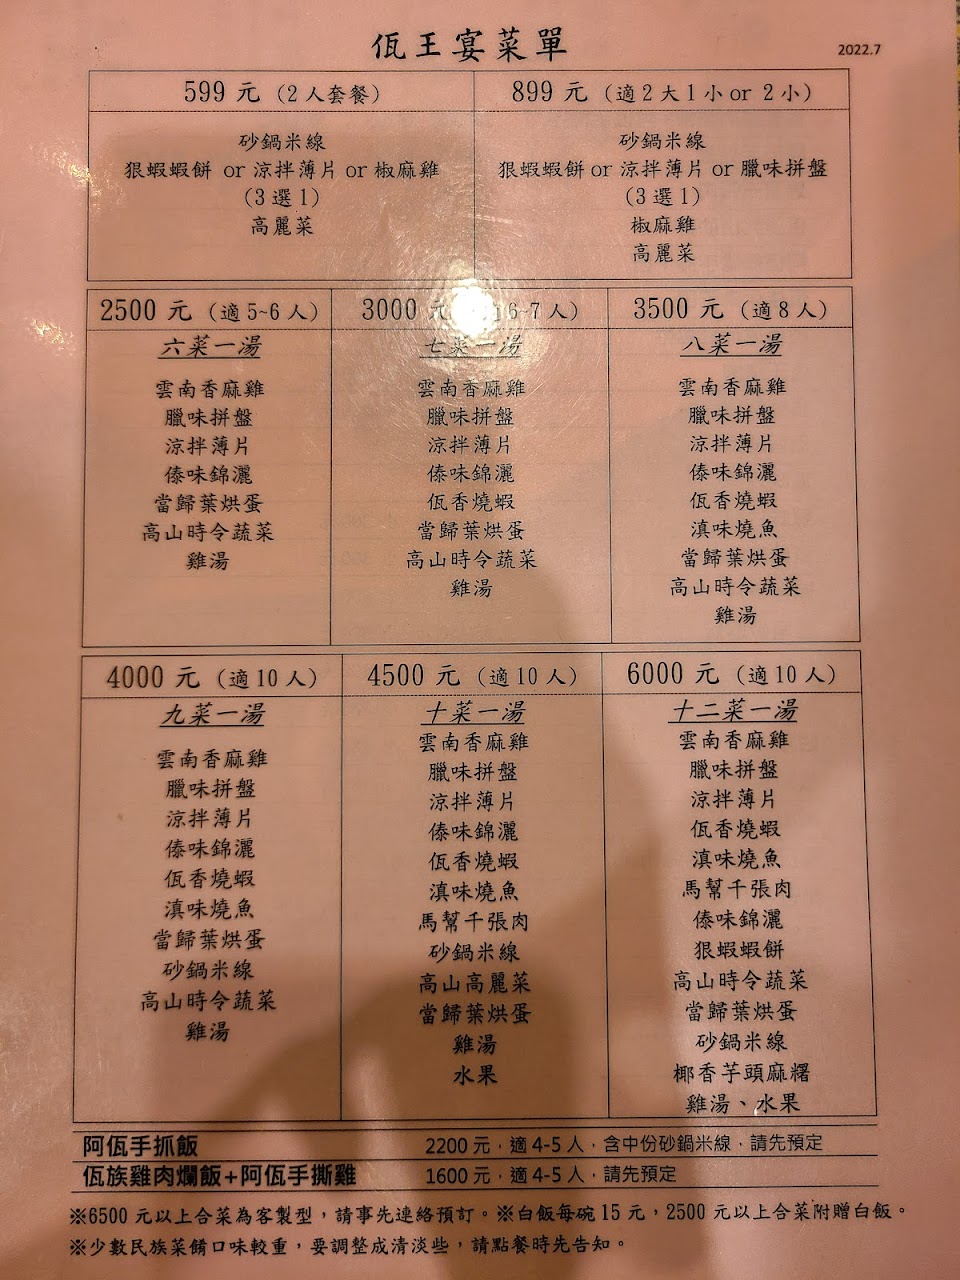 佤王宴菜單
2022.7
599 元（2人套餐）
砂鍋米線
狠蝦蝦餅 or 涼拌薄片 or 椒麻雞
（3 選 1）
高麗菜
899 元（適 2 大 1 小 or 2 小）
砂鍋米線
狠蝦蝦餅 or 涼拌薄片 or 臘味拼盤
（3 選 1）
椒麻雞
高麗菜
2500 元（適 5~6 人）
六菜一湯
雲南香麻雞
臘味拼盤
涼拌薄片
傣味錦灑
當歸葉烘蛋
高山時令蔬菜
雞湯
3000 元 6~7 人）
七菜一湯
雲南香麻雞
臘味拼盤
涼拌薄片
傣味錦灑
佤香燒蝦
當歸葉烘蛋
高山時令蔬菜
雞湯
3500 元（適 8 人）
八菜一湯
雲南香麻雞
臘味拼盤
涼拌薄片
傣味錦灑
佤香燒蝦
滇味燒魚
當歸葉烘蛋
高山時令蔬菜
雞湯
4000 元（適 10 人）
九菜一湯
雲南香麻雞
臘味拼盤
涼拌薄片
傣味錦灑
佤香燒蝦
滇味燒魚
當歸葉烘蛋
砂鍋米線
高山時令蔬菜
雞湯
4500 元（適 10 人）
十菜一湯
雲南香麻雞
臘味拼盤
涼拌薄片
傣味錦灑
佤香燒蝦
滇味燒魚
馬幫千張肉
砂鍋米線
高山高麗菜
當歸葉烘蛋
雞湯
水果
6000 元（適 10 人）
十二菜一湯
雲南香麻雞
臘味拼盤
涼拌薄片
佤香燒蝦
滇味燒魚
馬幫千張肉
傣味錦灑
狠蝦蝦餅
高山時令蔬菜
當歸葉烘蛋
砂鍋米線
椰香芋頭麻糬
雞湯、水果
阿佤手抓飯 2200 元，適 4-5 人，含中份砂鍋米線，請先預定
佤族雞肉爛飯+阿佤手撕雞 1600 元，適 4-5 人，請先預定
※6500 元以上合菜為客製型，請事先連絡預訂。※白飯每碗 15 元，2500 元以上合菜附贈白飯。
※少數民族菜餚口味較重，要調整成清淡些，請點餐時先告知。